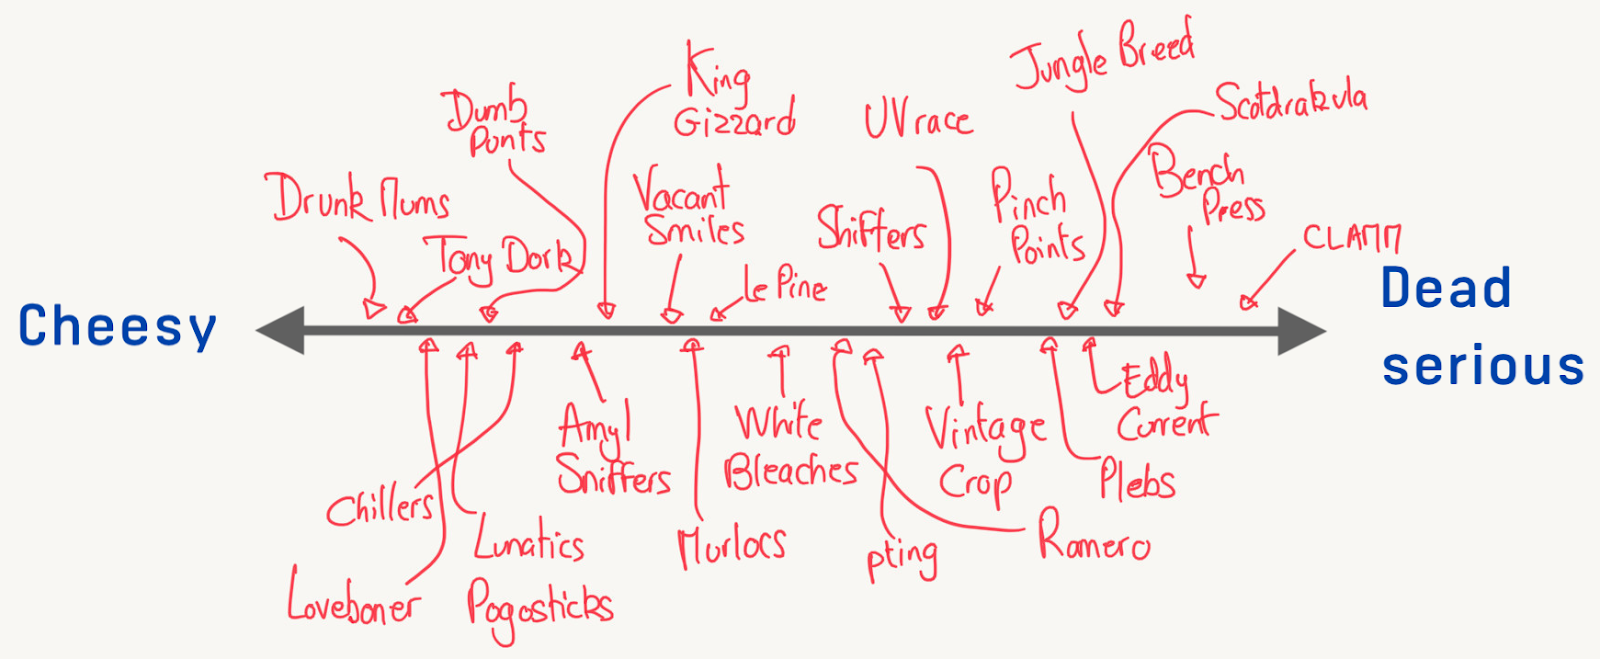 Cheesy
Dead
serious
Drunk Mums
Tony Dork
Dumb
Punts
King
Gizzard
Vacant
Smiles
Le Pine
Shifters
UV race
Pinch
Points
Jungle Breed
Scotdrakula
Bench
Press
CLAMM
Chillers
Loveboner
Lunatics
Pogosticks
Amyl
Sniffers
Murlocs
White
Bleaches
pting
Romero
Vintage
Crop
Plebs
Eddy
Current